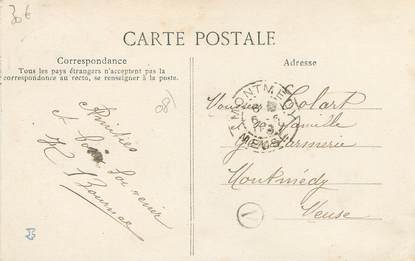 30€
CARTE POSTALE
Correspondance
Tous les pays étrangers n'acceptent pas la
correspondance au recto, se renseigner à la poste.
Amitiés
et bon Souvenir
Adresse
Colart
famille
Gendarmerie
Montmédy
Meuse
MONTMEDY
MEUSE